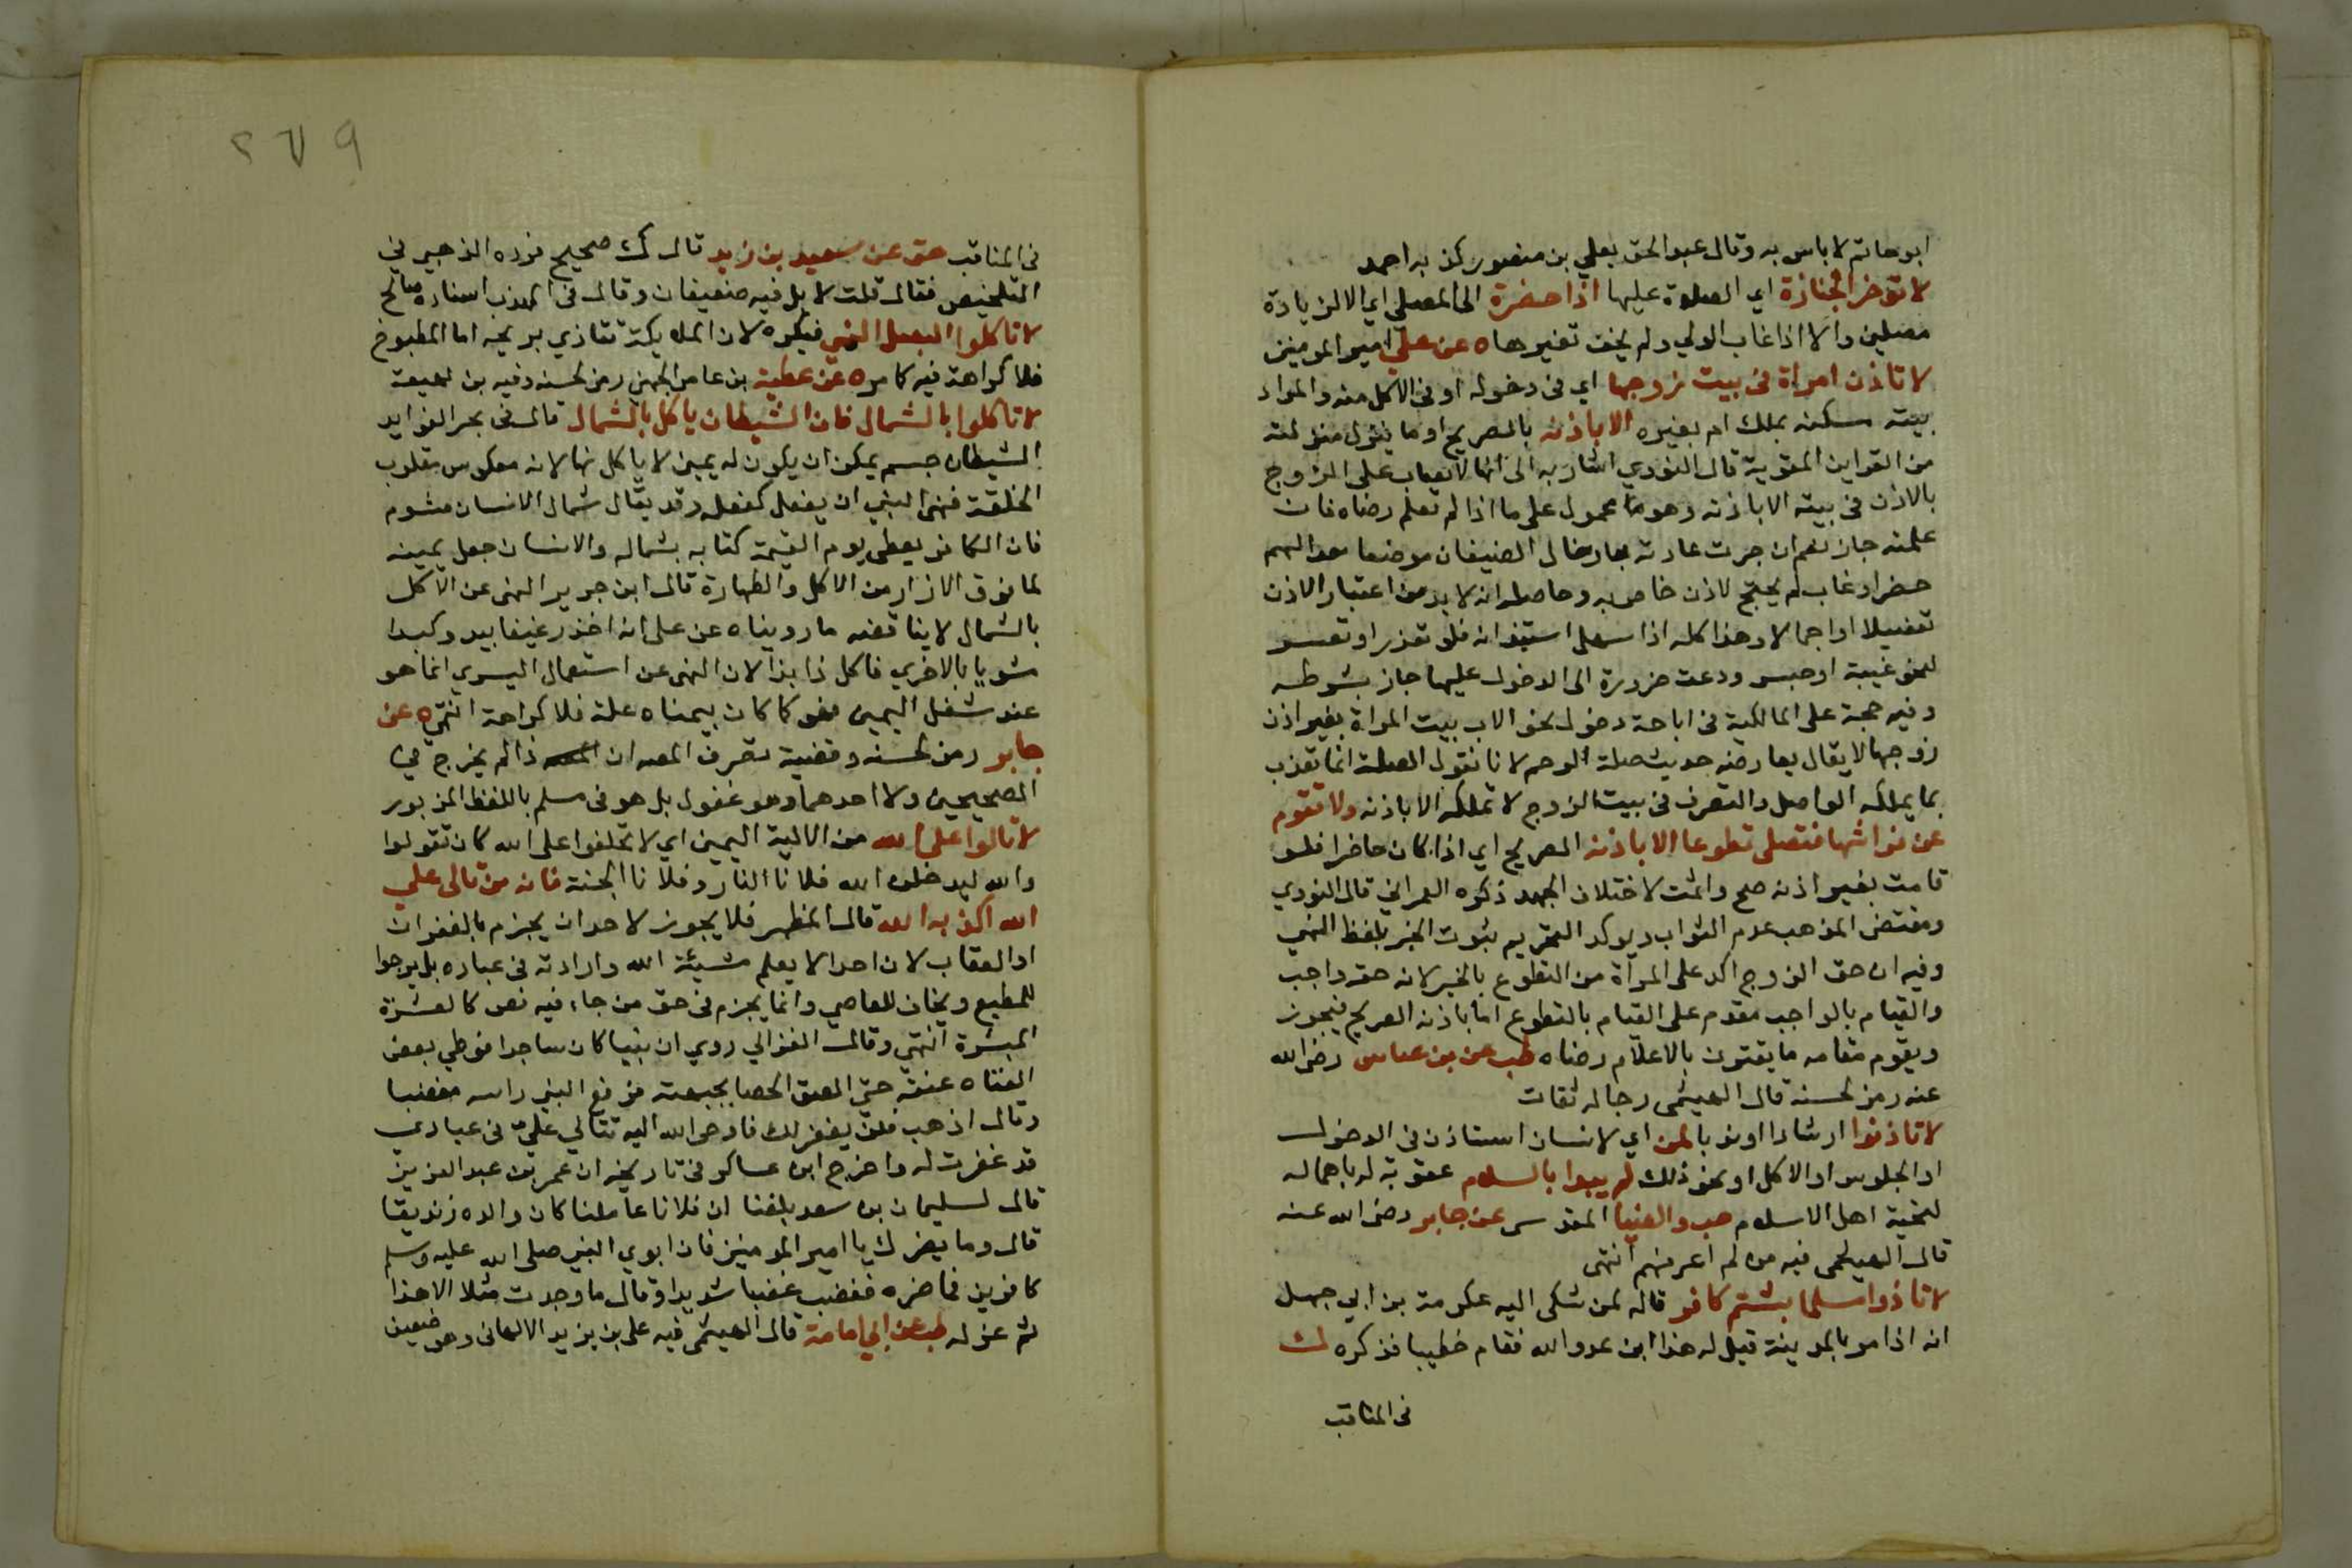 ابوحاتم لا باس به وقال عبد الحق يعلي بن منصور كذبه احمد
لا توخر الجنازة اي الصلوة عليها اذا حضرة الى المصلى اي الا لزيادة
مصلين والا اذا غاب الولي ولم يخف تغيرها ه عن علي امير المومنين
لا تاذن امراة فى بيت زوجها اي فى دخوله او فى الاكل منه والمراد
بيته سكنه بملك ام بغيره الا باذنه بالصريح او ما ينزل منزلته
من القراين القوية قال النووي اشار به الى انه لا يعاب على الزوج
بالاذن فى بيته الا باذنه وهو محمول على ما اذا لم تعلم رضاه فان
علمته جاز نعم ان جرت عادته بادخال الضيفان موضعا معدا لهم
حضر او غاب لم يحتج لاذن خاص به وحاصله انه لا بد من اعتبار الاذن
تفصيلا او اجمالا وهذا كله اذا سهل استيذانه فلو تعذر او تعسر
لنحو غيبة او حبس ودعت ضرورة الى الدخول عليها جاز بشرطه
وفيه حجة على المالكية فى اباحة دخول نحو الاب بيت المراة بغير اذن
زوجها لا يقال يعارضه حديث صلة الرحم لانا نقول الصلة انما تندب
بما يملكه الواصل والتصرف فى بيت الزوج لا تملكه الا باذنه ولا تقوم
عن فراشها فتصلى تطوعا الا باذنه الصريح اي اذا كان حاضرا فلو
قامت بغير اذنه صح واثمت لاختلاف الجهة ذكره العمراني قال النووي
ومقتضى المذهب عدم الثواب ويوكد التحريم ثبوت الخبر بلفظ النهي
وفيه ان حق الزوج اكد على المرأة من التطوع بالخير لانه حق واجب
والقيام بالواجب مقدم على القيام بالتطوع اما باذنه الصريح فيجوز
ويقوم مقامه ما يقترن بالاعلام رضاه طب عن بن عباس رضى الله
عنه رمز لحسنه قال الهيثمى رجاله ثقات
لا تاذنوا ارشادا او ندبا لمن اي لانسان استاذن فى الدخول
او الجلوس او الاكل او نحو ذلك لم يبدا بالسلام عقوبة له باهماله
لتحية اهل الاسلام هب والضيا المقدسى عن جابر رضى الله عنه
قال الهيثمى فيه من لم اعرفهم انتهى
لا تاذوا مسلما بشتم كافر قاله لمن شكى اليه عكرمة بن ابي جهل
انه اذا مر بالمدينة قيل له هذا ابن عدو الله فقام خطيبا فذكره ك
فى المناقب
٢٦٧٩
فى المناقب هق عن سعيد بن زيد قال ك صحيح فرده الذهبي في
التلخيص فقال قلت لا بل فيه ضعيفان وقال فى المهذب اسناده صالح
لا تاكلوا البصل الني فيكره لان الملايكة تتاذي بريحه اما المطبوخ
فلا كراهة فيه كما مر ه عن عطية بن عامر الجهني رمز لحسنه وفيه بن لهيعة
لا تاكلوا بالشمال فان الشيطان ياكل بالشمال قال فى بحر الفوايد
الشيطان جسم يمكن ان يكون له يمين لا ياكل بها لانه معكوس مقلوب
الخلقة فنهى النبي ان يفعل كفعله وقد يقال شمال الانسان مشوم
فان الكافر يعطى يوم القيمة كتابه بشماله والانسان جعل يمينه
لما فوق الازار من الاكل والطهارة قال ابن جرير النهى عن الاكل
بالشمال لا يناقضه ما رويناه عن على انه اخذ رغيفا بيد وكبدا
مشويا بالاخري فاكل ذا بذا لان النهى عن استعمال اليسري انما هو
عند شغل اليمين فلو كان بيمناه علة فلا كراهة انتهى ه عن
جابر رمز لحسنه وقضية تصرف المص ان ذا لم يخرج في
الصحيحين ولا احدهما وهو غفول بل هو فى مسلم باللفظ المزبور
لا تالوا على الله من الالية اليمين اي لا تحلفوا على الله كان تقولوا
والله ليدخلن الله فلانا النار وفلانا الجنة فانه من تالى على
الله اكذبه الله قال المظهر فلا يجوز لاحد ان يجزم بالغفران
او العقاب لان احدا لا يعلم مشيئة الله وارادته فى عباده بل يرجوا
للمطيع ويخاف للعاصي وانما يجزم فى حق من جاء فيه نص كالعشرة
المبشرة انتهى وقال الغزالي روي ان نبيا كان ساجدا فوطي بعض
العتاه عنقه حتى الصق الحصا بجبهته فرفع النبى راسه مغضبا
وقال اذهب فلن يغفر لك فاوحى الله اليه تتالي علي فى عبادي
قد غفرت له واخرج ابن عساكر فى تاريخه ان عمر بن عبد العزيز
قال لسليمان بن سعد بلغنا ان فلانا عاملنا كان والده زنديقا
قال وما يضرك يا امير المومنين فان ابوي النبي صلى الله عليه وسلم
كافرين فما ضره فغضب غضبا شديدا وقال ما وجدت مثلا الا هذا
ثم عزله طب عن ابي امامة قال الهيثمى فيه على بن يزيد الالهانى وهو ضعيف